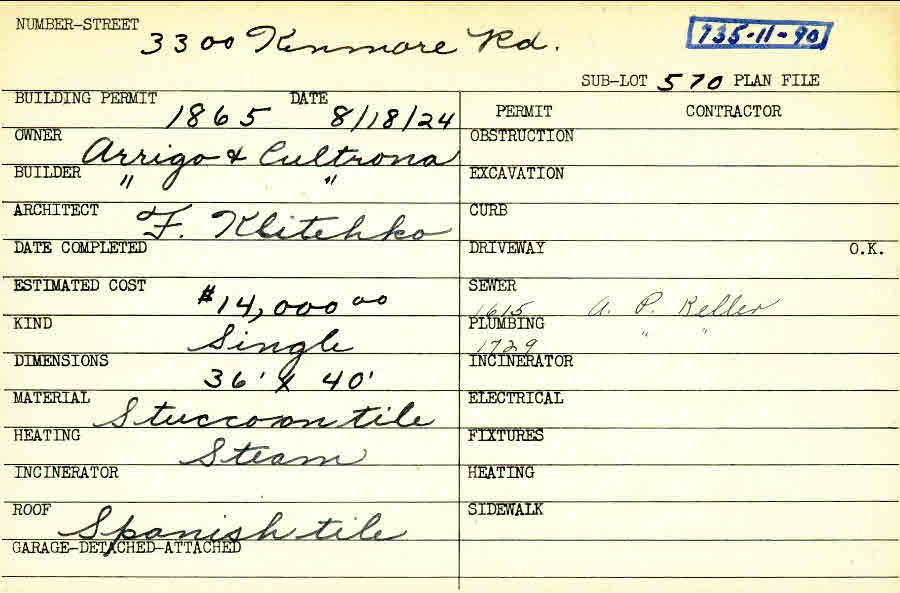 NUMBER-STREET 3300 Kinmore Rd.
735-11-90
SUB-LOT 570 PLAN FILE
BUILDING PERMIT 1865 DATE 8/18/24
OWNER Arrigo & Cultrona
BUILDER " "
ARCHITECT F. Klitchko
DATE COMPLETED
ESTIMATED COST $14,000 00
KIND Single
DIMENSIONS 36' X 40'
MATERIAL Stucco on tile
HEATING Steam
INCINERATOR
ROOF Spanish tile
GARAGE-DETACHED-ATTACHED
PERMIT CONTRACTOR
OBSTRUCTION
EXCAVATION
CURB
DRIVEWAY O.K.
SEWER
1615 A. P. Keller
PLUMBING " "
1729
INCINERATOR
ELECTRICAL
FIXTURES
HEATING
SIDEWALK